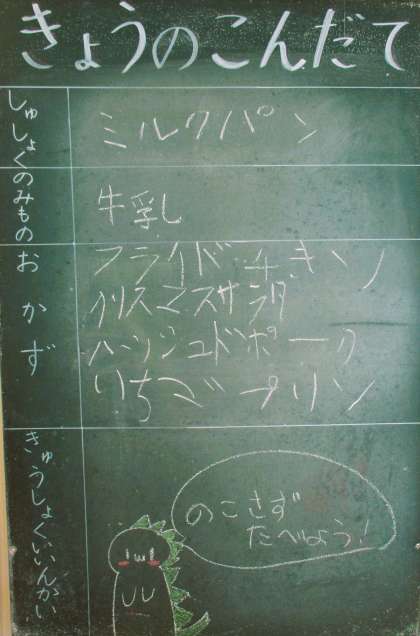 きょうのこんだて
しゅしょく
ミルクパン
のみもの
牛乳
おかず
フライドチキン
クリスマスサラダ
ハッシュドポーク
いちごプリン
きゅうしょくいいんかい
のこさず
たべよう!